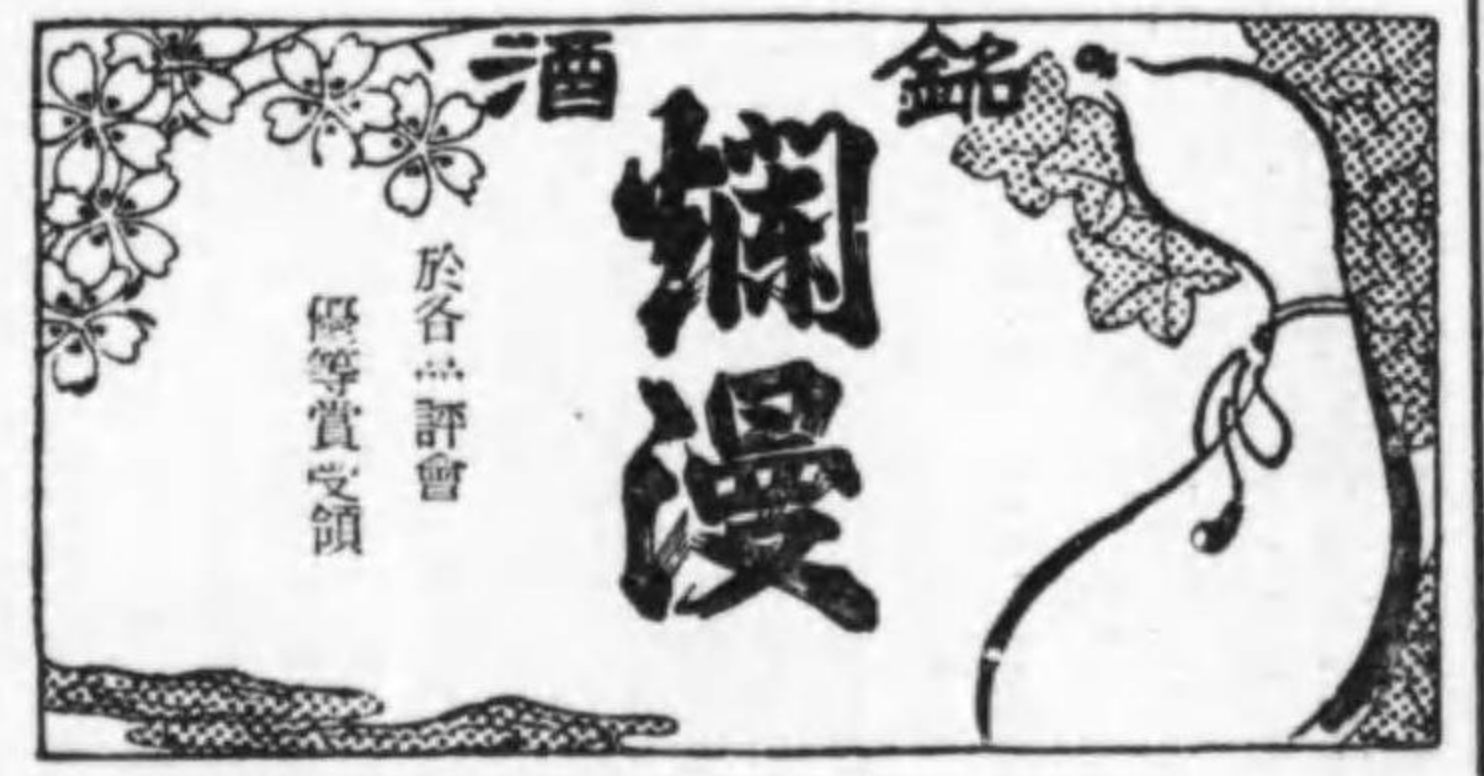 銘酒
爛漫
於各品評會
優等賞受領